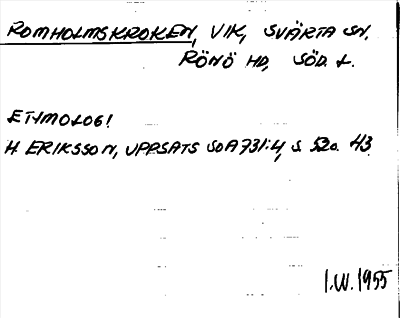 ROMHOLMSKROKEN, VIK, SVÄRTA SN.
RÖNÖ HD, SÖD. L.
ETYMOLOGI
H. ERIKSSON, UPPSATS SOA 731:4, S. 52 o. 43.
I.W. 1955